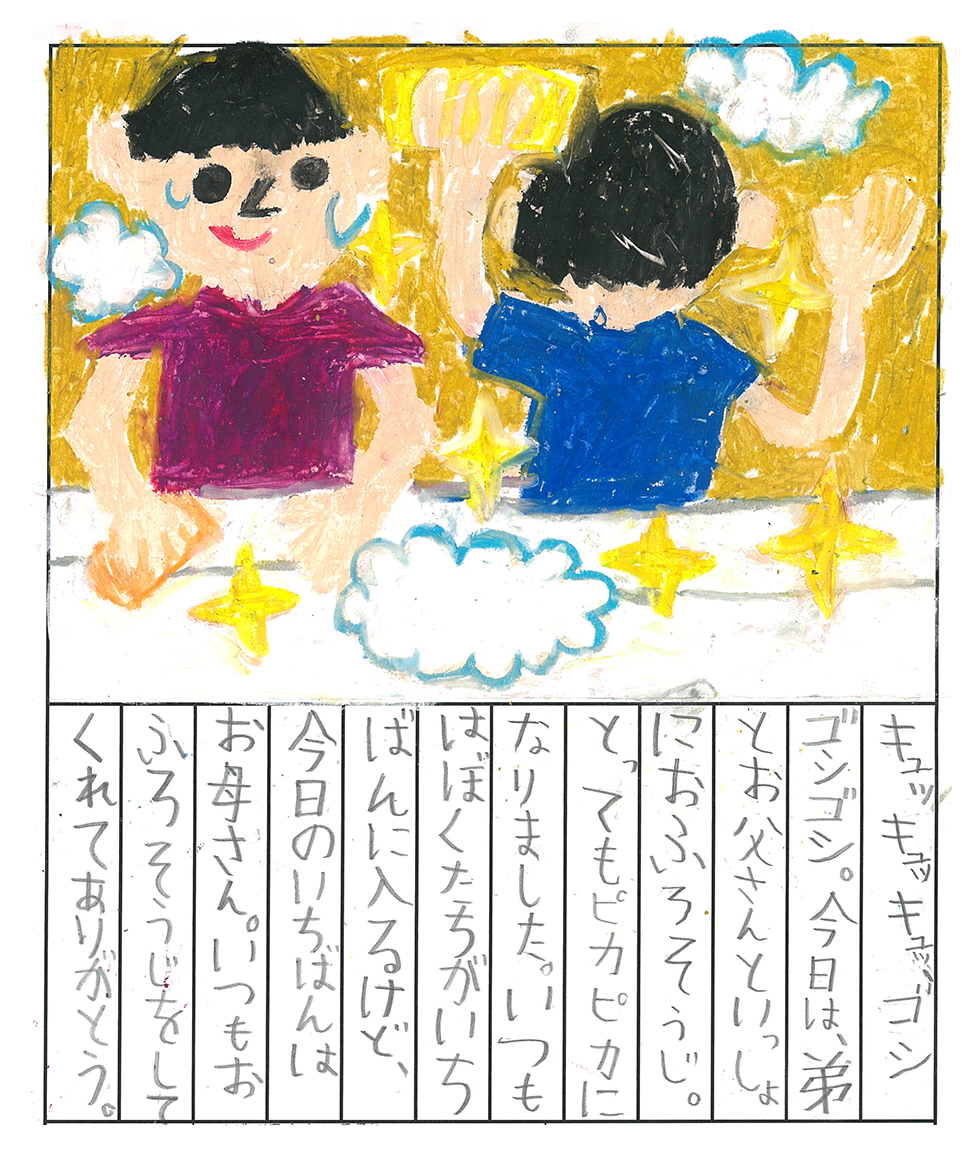 キュッキュッキュッゴシ
ゴシゴシ。今日は、弟
とお父さんといっしょ
におふろそうじ。
とってもピカピカに
なりました。いつも
はぼくたちがいち
ばんに入るけど、
今日のいちばんは
お母さん。いつもお
ふろそうじをして
くれてありがとう。